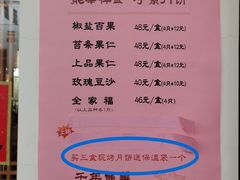 椒盐百果 48元/盒(4只*12元)
苔条果仁 48元/盒(4只*12元)
上品果仁 48元/盒(4只*12元)
玫瑰豆沙 40元/盒(4只*10元)
全家福 46元/盒(4只)
买三盒现烤月饼送保温袋一个